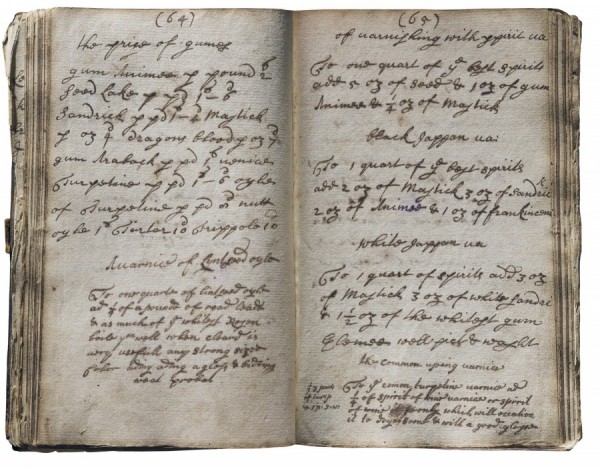 (64)
the prise of gumes
gum Animee p pound 6 2
Seed Lake p pd 1s-6
Sandrick p pd 1s-4 Mastick
p oz 4d dragons blood p oz 7d
gum Araback p pd 1s venice
Turpetine p pd 1s-6 oyle
of Turpetine p pd nutt
oyle 1s Terler 10 Trippole 10
A varnice of Lintseed oyle
To one quarter of lintseed oyle
ad 1/4 of a pounde of read Leade
& as much of ye whitest Rosen
boile ym well when cleard is
very usefull any strong size
Coler being a glosy & bidding
weat probat
(65)
of varnishing with spirit va
To one quart of ye best spirits
add 5 oz of seed & 1 oz of gum
Animee & 1/2 oz of Mastick
black Jappan va:
To 1 quart of ye best spirits
add 2 oz of Mastick 3 oz of Sandrick
2 oz of Animee & 1 oz of frankincens
White Jappan va
To 1 quart of spirits add 3 oz
of Mastick 3 oz of white Sandri
& 1 1/2 oz of the whitest gum
Elemee well pict & waght
the common using varnice
To ye comon turpetine varnice ad
1/4 of spirit of wine varnice or spirit
of wine only which will occation
it to dry & with a good glosse